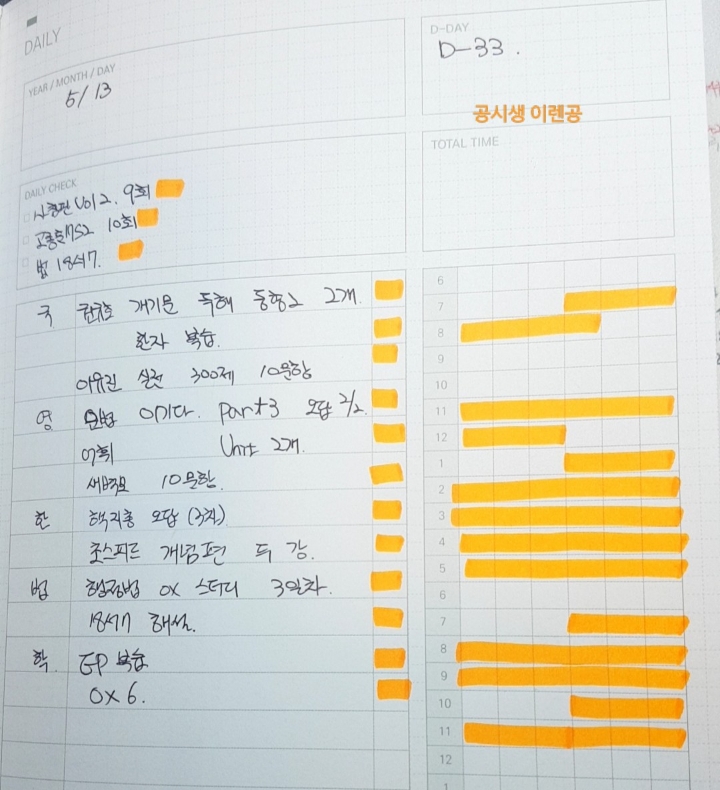 DAILY
YEAR / MONTH / DAY
5/13
D-DAY
D-33.
공시생 이렌공
TOTAL TIME
DAILY CHECK
Vol 2. 9회
10회
법 18서7.
국 권규호 개기문 독해 동형2 2개.
한자 복습.
이유진 실전 300제 10문항
영 문법 이기다. part3 오답 2/2.
어휘 Unit 2개.
10문항.
한 핵지총 오답 (3차)
초스피드 개념편 두 강.
법 행정법 OX 스터디 3일차.
18서7 해설.
학 GP 복습
OX 6.
6
7
8
9
10
11
12
1
2
3
4
5
6
7
8
9
10
11
12
1